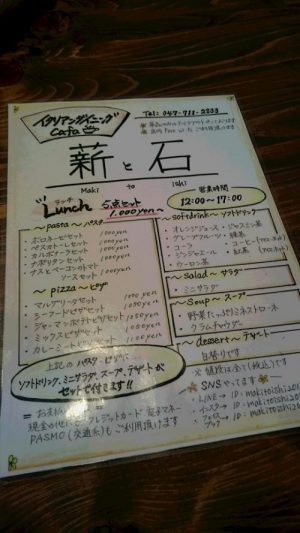 イタリアンダイニング
Cafe
Tel: 047-711-2233
薪と石
Maki to Ishi
ランチ
"Lunch 5点セット
1,000yen
営業時間
12:00〜17:00
〜pasta〜 パスタ
・ボロネーゼセット 1000yen
・ペスカトーレセット 1000yen
・カルボナーラセット 1000yen
・ナポリタンセット 1000yen
・ナスとベーコンのトマト
ソースセット 1000yen
〜pizza〜 ピザ
・マルゲリータセット 1000yen
・シーフードピザセット
・ジャーマンポテトピザセット
・ミックスピザセット
・カレーミートピザセット
上記のパスタ・ピザに
ソフトドリンク、ミニサラダ、スープ、デザートが
セットで付きます!!
〜softdrink〜 ソフトドリンク
・オレンジジュース ・ジャスミン茶
・グレープフルーツ ・緑茶
・コーラ ・コーヒー(アイスorホット)
・ジンジャエール ・紅茶(アイスorホット)
・ウーロン茶
〜salad〜 サラダ
・ミニサラダ
〜soup〜 スープ
・野菜たっぷりミネストローネ
・クラムチャウダー
〜dessert〜 デザート
・日替りです
※値段は全て(税込)です
SNSやってます
・LINE → ID:makitoishi
・インスタ → ID:makitoishi
・フェイスブック → ID:makitoishi
現金の他にもクレジットカード 電子マネー
PASMO(交通系)もご利用頂けます